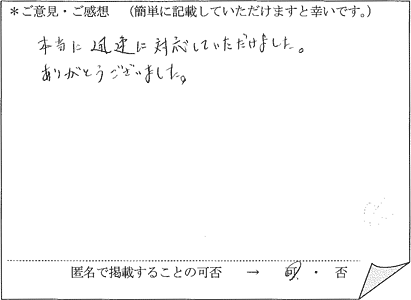 ＊ご意見・ご感想　（簡単に記載していただけますと幸いです。）
本当に迅速に対応していただけました。
ありがとうございました。
匿名で掲載することの可否　→　可　・　否